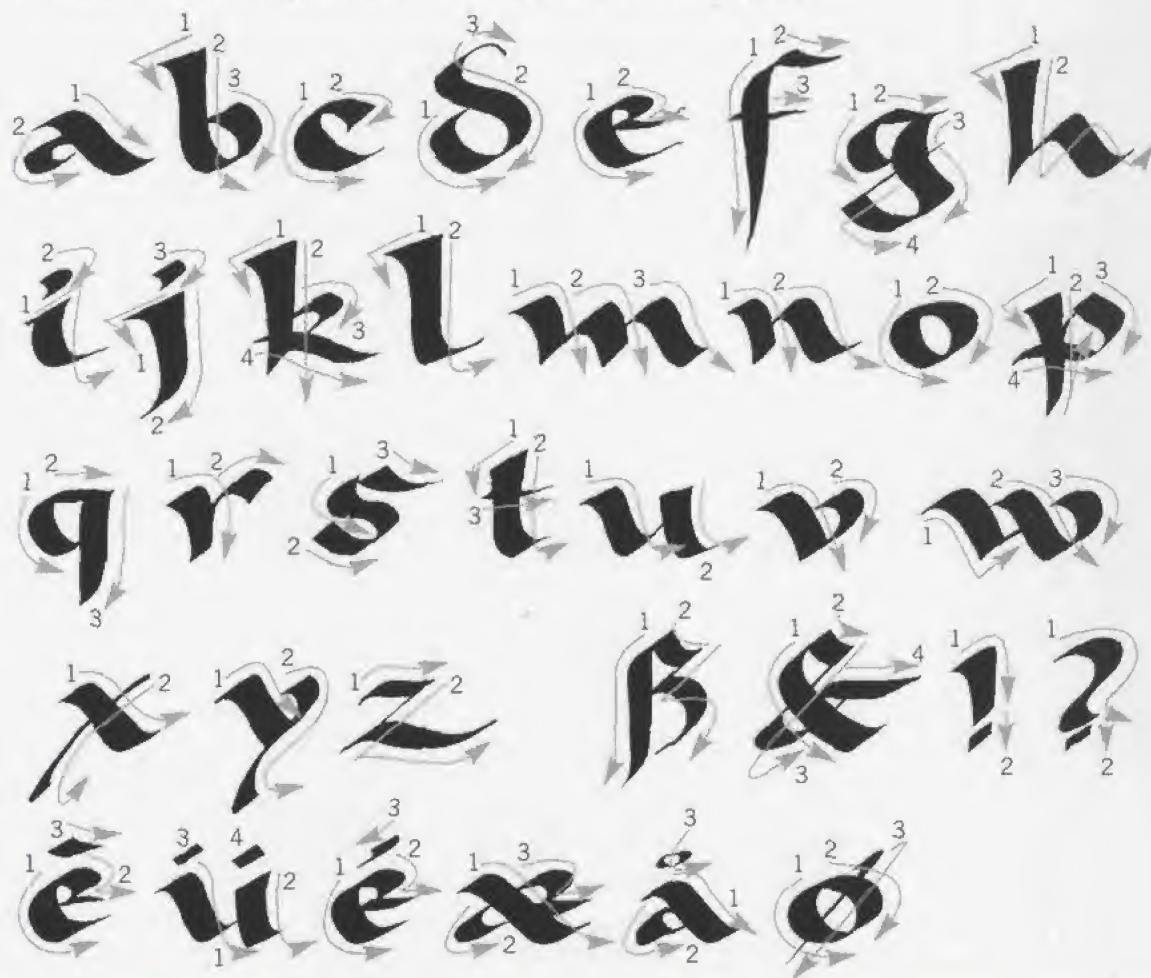 a b c d e f g h
i j k l m n o p
q r s t u v w
x y z ß & ! ?
ē ü é æ å ø